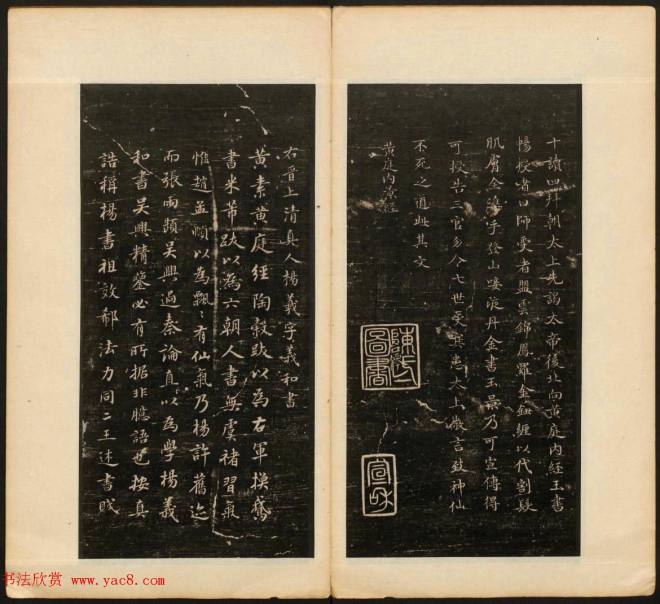 十讀四拜朝太上先謁太帝後北向黃庭內経玉書
暢授者曰師受者盟雲錦鳳羅金鈕纏以代割髮
肌膚全携手登山歃液丹金書玉景乃可宣傳得
可授告三官勿令七世受冥患太上微言致神仙
不死之道此其文
黃庭內景經
陳氏圖書
宣和
右晉上清真人楊羲字羲和書
黃素黃庭經陶穀跋以為右軍換鵞
書米芾跋以為六朝人書無虞褚習氣
惟趙孟頫以為飄〻有仙氣乃楊許舊迹
而張雨題吳興過秦論直以為學楊羲
和書吳興精鑒必有所据非臆語也按真
誥稱楊書祖效郗法力同二王述書賦
书法欣赏 www.yac8.com